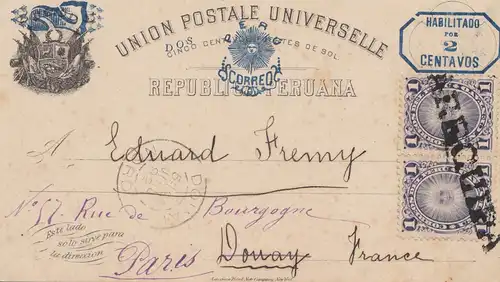 UNION POSTALE UNIVERSELLE
PERÚ
DOS
CINCO CENTAVOS DE SOL
CORREOS
REPUBLICA PERUANA
HABILITADO
POR
2
CENTAVOS
1 1
1 1
A Eduard Fremy
Nº 57. Rue de Bourgogne
Este lado
solo sirve para
la dirección
Paris Douay France